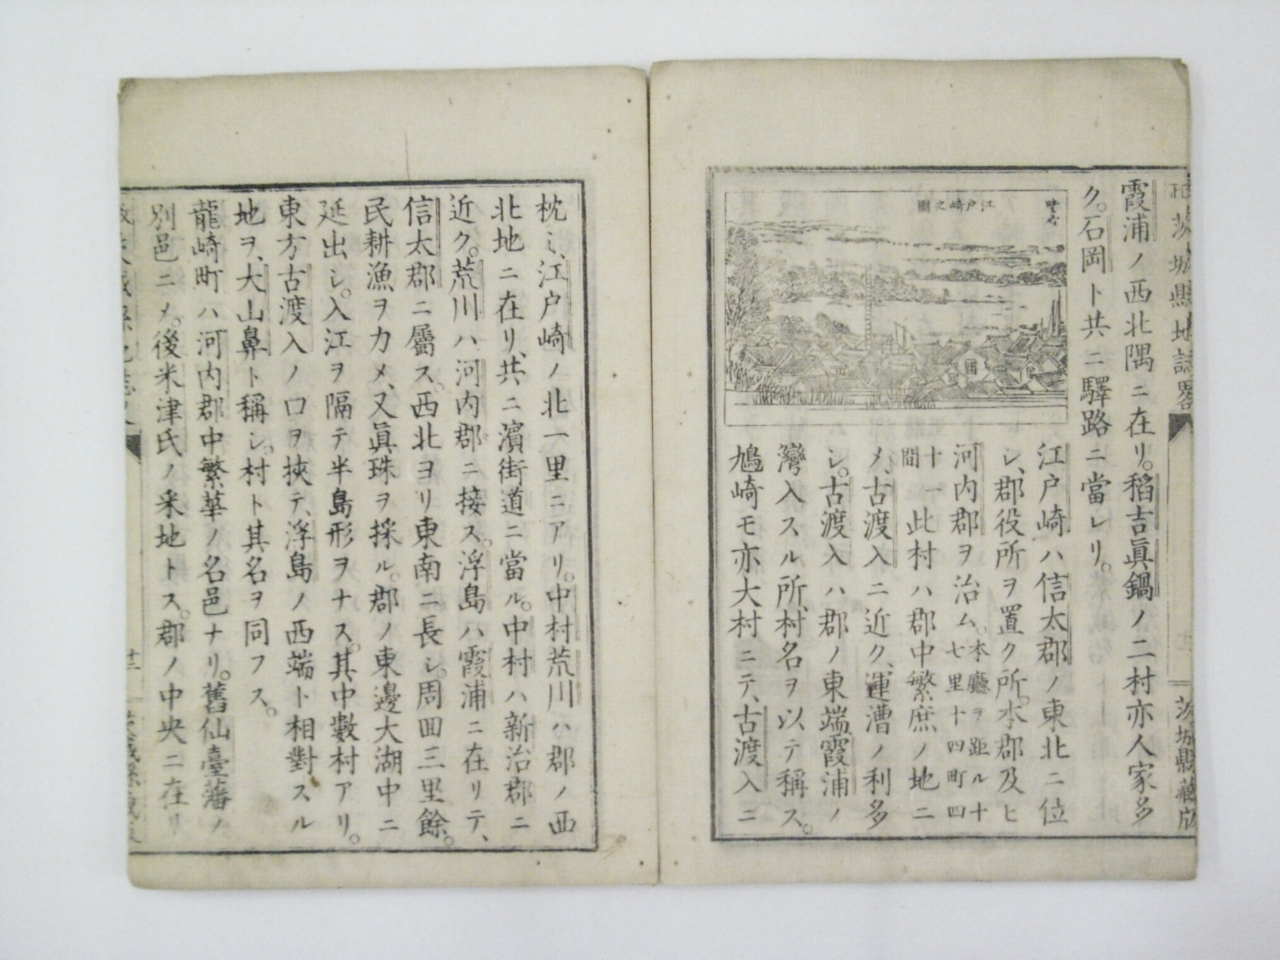 茨城縣地誌畧
茨城縣藏版
霞浦ノ西北隅ニ在リ。稻吉眞鍋ノ二村亦人家多
ク。石岡ト共ニ驛路ニ當レリ。
江戸崎之圖
江戸崎ハ信太郡ノ東北ニ位
シ、郡役所ヲ置ク所。本郡及ヒ
河内郡ヲ治ム。本廳ヲ距ル十七里十四町四
十一間此村ハ郡中繁庶ノ地ニ
メ、古渡入ニ近ク、運漕ノ利多
シ。古渡入ハ郡ノ東端霞浦ノ
灣入スル所、村名ヲ以テ稱ス。
鳩崎モ亦大村ニテ、古渡入ニ
枕ミ、江戸崎ノ北一里ニアリ。中村荒川ハ郡ノ西
北地ニ在リ、共ニ濱街道ニ當ル。中村ハ新治郡ニ
近ク。荒川ハ河内郡ニ接ス。浮島ハ霞浦ニ在リテ、
信太郡ニ屬ス。西北ヨリ東南ニ長シ。周囬三里餘。
民耕漁ヲカメ、又眞珠ヲ採ル。郡ノ東邊大湖中ニ
延出シ。入江ヲ隔テ半島形ヲナス。其中數村アリ。
東方古渡入ノ口ヲ挾テ、浮島ノ西端ト相對スル
地ヲ、大山鼻ト稱シ。村ト其名ヲ同フス。
龍崎町ハ河内郡中繁華ノ名邑ナリ。舊仙臺藩ノ
別邑ニメ。後米津氏ノ采地トス。郡ノ中央ニ在リ